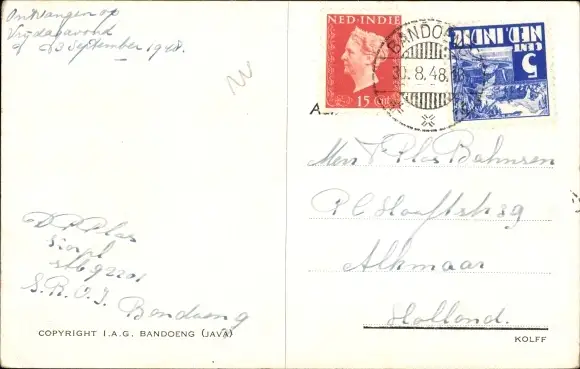 Ontvangen op
Vrijdagavond
3 September 1948.
NED·INDIE
15 CENT
BANDOENG
30.8.48.
5
CENT
NED. INDIE
Mevr Plas Bahnsen
P C Hooftstr 39
Alkmaar
Holland.
Plas
S.R.O.I. Bandoeng
COPYRIGHT I.A.G. BANDOENG (JAVA)
KOLFF